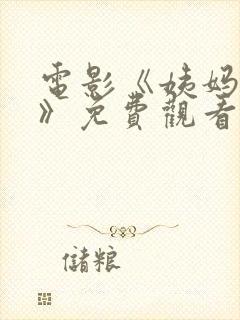 電影《姨妈
》免費觀看
儲粮